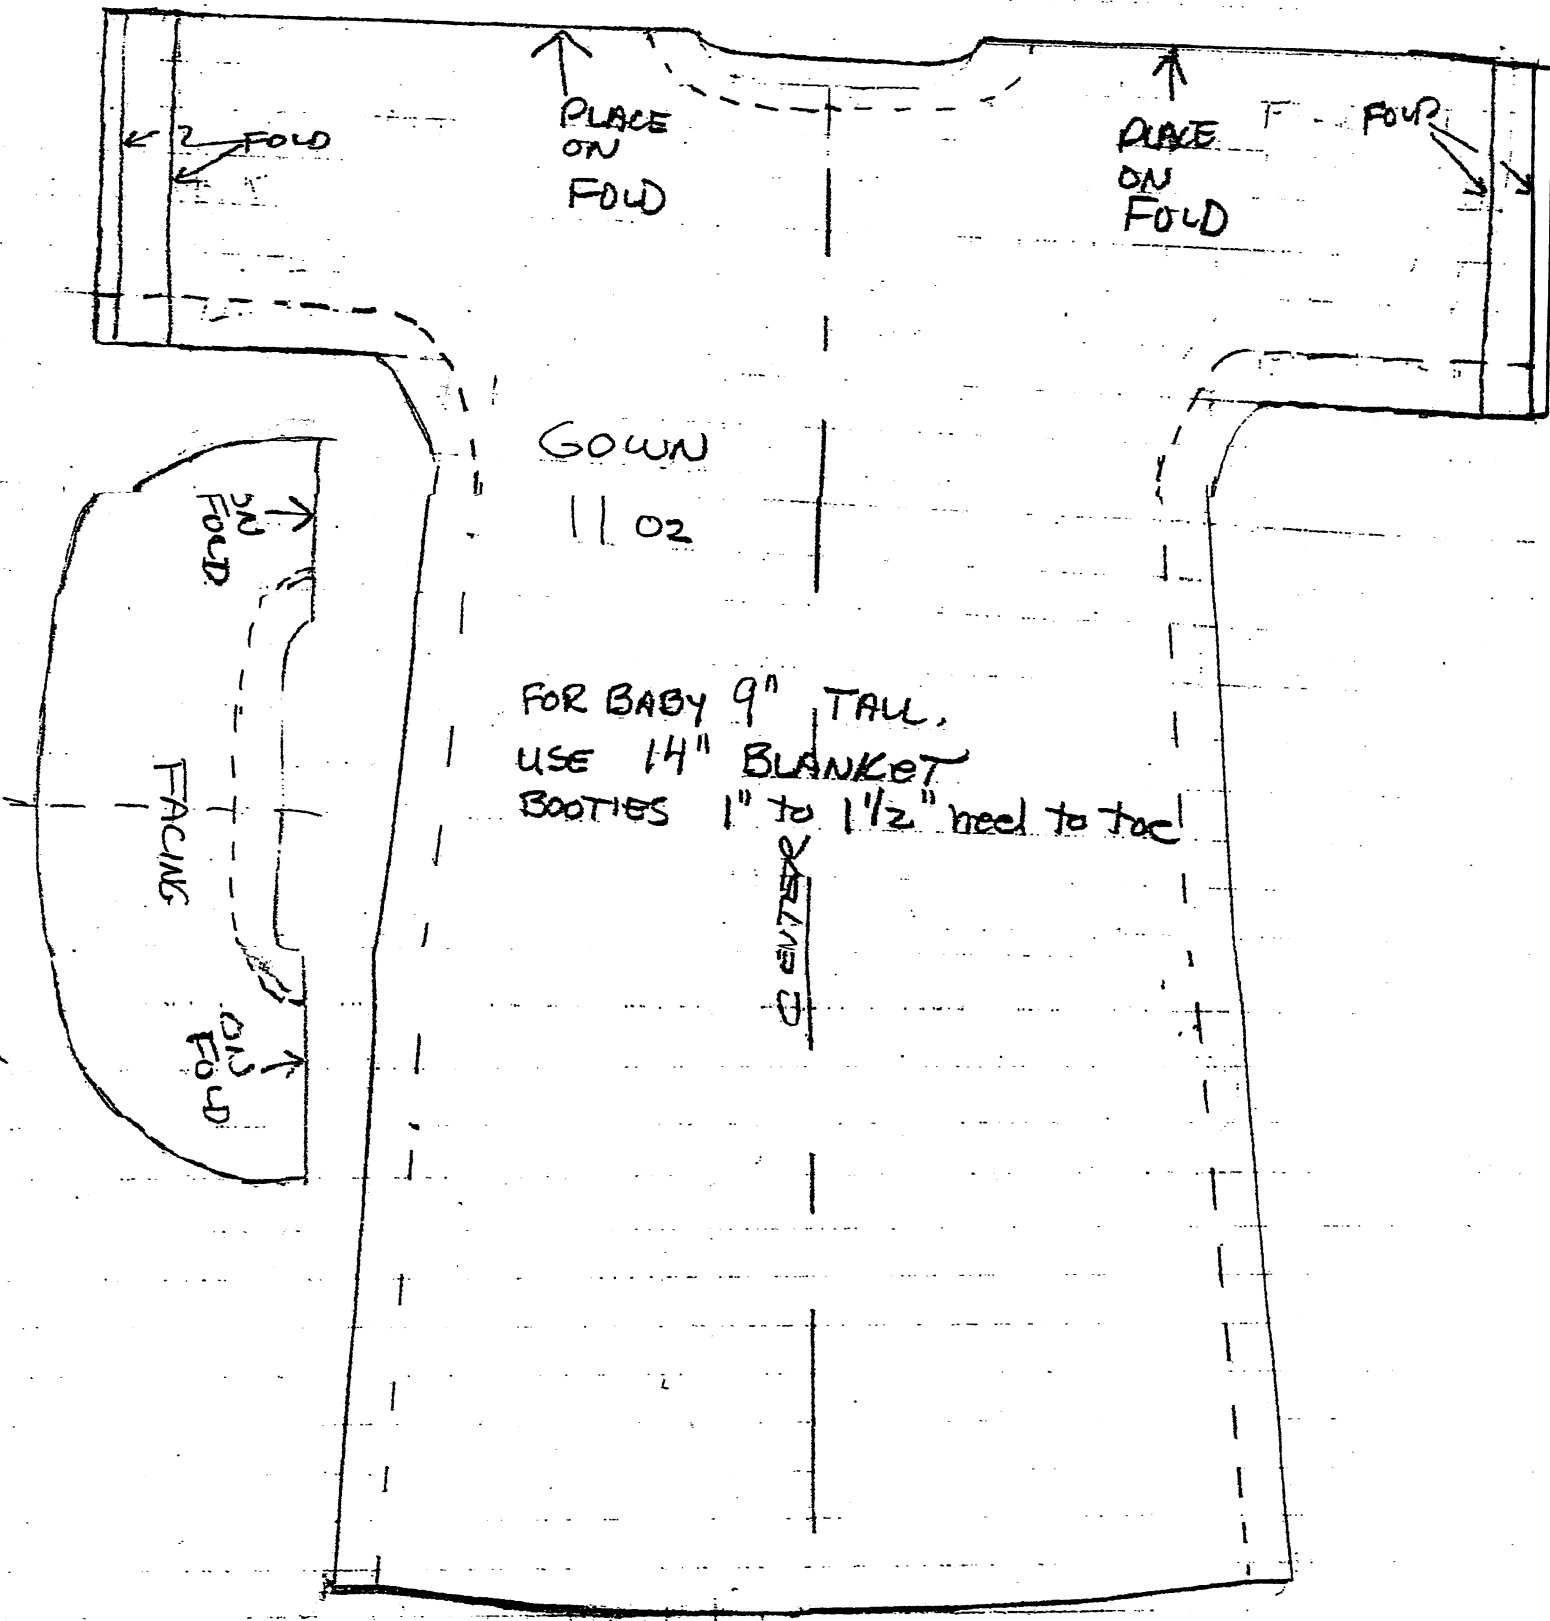 FOLD
PLACE
ON
FOLD
PLACE
ON
FOLD
FOLD
GOWN
11 oz
ON
FOLD
FACING
ON
FOLD
FOR BABY 9" TALL.
USE 14" BLANKET
BOOTIES 1" to 1 1/2" heel to toe